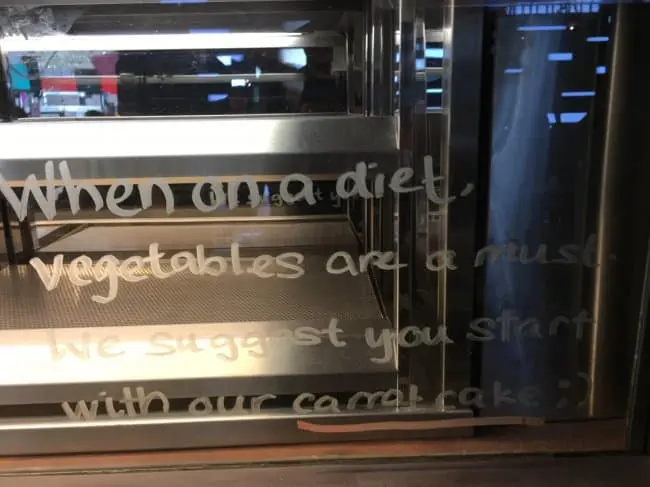 When on a diet,
vegetables are a must.
We suggest you start
with our carrot cake ;)